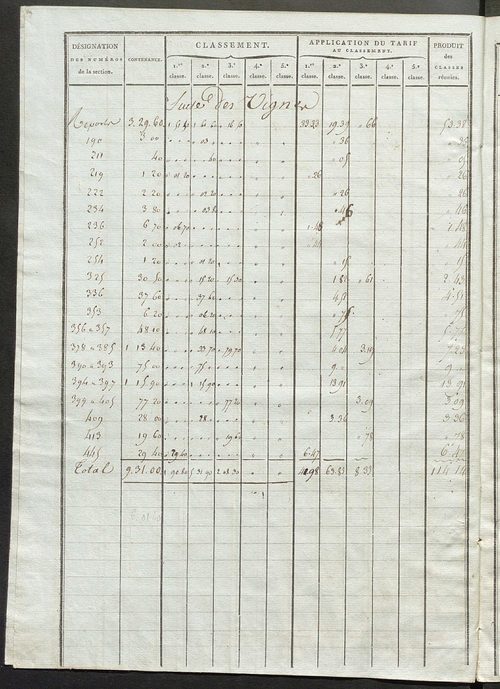 DÉSIGNATION DES NUMÉROS de la section. CONTENANCE. CLASSEMENT. APPLICATION DU TARIF AU CLASSEMENT. PRODUIT des CLASSES réunies.
1.re classe. 2.e classe. 3.e classe. 4.e classe. 5.e classe. 1.re classe. 2.e classe. 3.e classe. 4.e classe. 5.e classe.
Suite des Vignes
Reports 3. 29. 60 33.33 19.39 66 53.38
190 3 00 03 36 36
211 40 40 05 05
219 1 20 01.20 26 26
222 2 20 02.20 26 26
234 3 80 03.80 46 46
236 6 70 06.70 1.48 1.48
252 2 00 02 44 44
254 1 20 01.20 15 15
325 30 50 15.20 15.30 1.82 61 2.43
336 37 60 37.60 4.51 4.51
353 6 20 06.20 75 75
356 a 357 48 10 48.10 5.77 5.77
378 a 385 1 13 40 33.70 79.70 4.04 3.19 7.23
390 a 393 75 00 75 9 9
394 a 397 1 15 90 1 15.90 13.91 13.91
399 a 405 77 20 77.20 3.09 3.09
409 28 00 28 3.36 3.36
413 19 60 19.60 78 78
445 29 40 29.40 6.47 6.47
Total 9. 31. 00 1 90.80 5 31.90 2 08.30 63.83 8.33 114.14